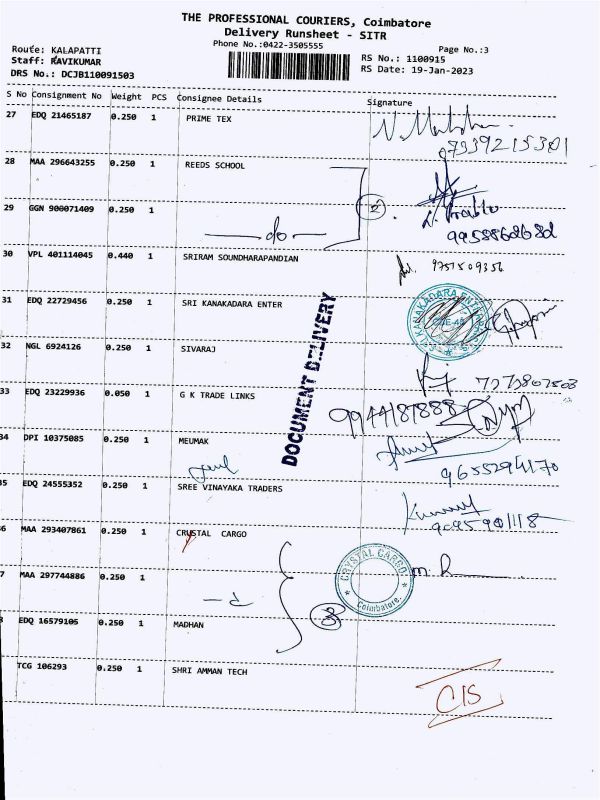 THE PROFESSIONAL COURIERS, Coimbatore
Delivery Runsheet - SITR
Phone No.:0422-3505555
Page No.:3
Route: KALAPATTI
RS No.: 1100915
Staff: RAVIKUMAR
RS Date: 19-Jan-2023
DRS No.: DCJB110091503
S No Consignment No Weight PCS Consignee Details Signature
27 EDQ 21465187 0.250 1 PRIME TEX
28 MAA 296643255 0.250 1 REEDS SCHOOL
2
29 GGN 900071409 0.250 1
do
30 VPL 401114045 0.440 1 SRIRAM SOUNDHARAPANDIAN
9751509356
31 EDQ 22729456 0.250 1 SRI KANAKADARA ENTER
32 NGL 6924126 0.250 1 SIVARAJ
DOCUMENT DELIVERY
33 EDQ 23229936 0.050 1 G K TRADE LINKS
9944187888
34 DPI 10375085 0.250 1 MEUMAK
9655294170
35 EDQ 24555352 0.250 1 SREE VINAYAKA TRADERS
6 MAA 293407861 0.250 1 CRUSTAL CARGO
CRYSTAL CARGO
Coimbatore.
7 MAA 297744886 0.250 1
3
EDQ 16579105 0.250 1 MADHAN
TCG 106293 0.250 1 SHRI AMMAN TECH
CIS